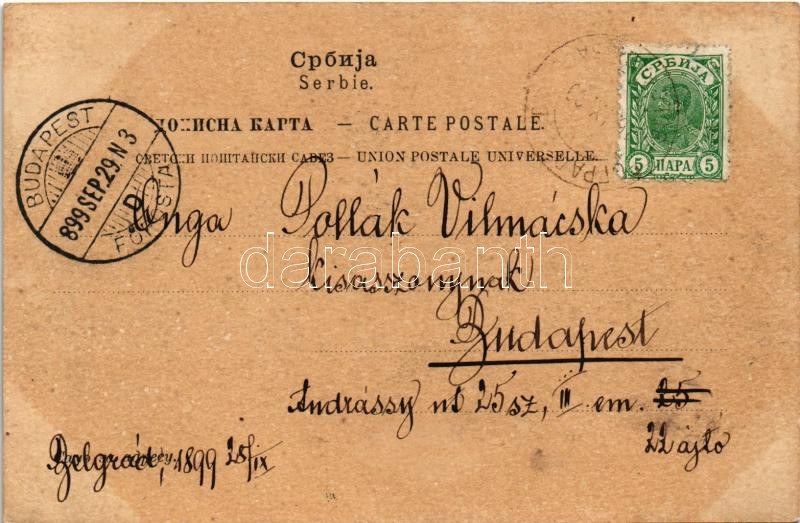 Србија
Serbie.
ДОПИСНА КАРТА — CARTE POSTALE.
СВЕТСКИ ПОШТАНСКИ САВЕЗ — UNION POSTALE UNIVERSELLE.
СРБИЈА
5 ПАРА 5
BUDAPEST
899 SEP. 29. N 3
D
Pollák Vilmácska
kisasszonynak
Budapest
Andrássy ut 25 sz, III em. 25
22 ajto
Belgrád, 1899 28/IX
darabanth